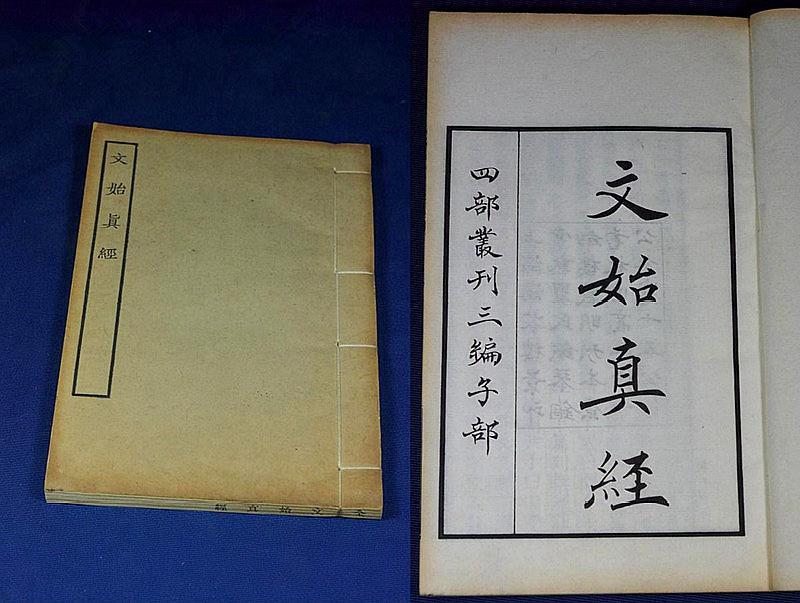 文始眞經
文始真經
文始真経
四部叢刊三編子部